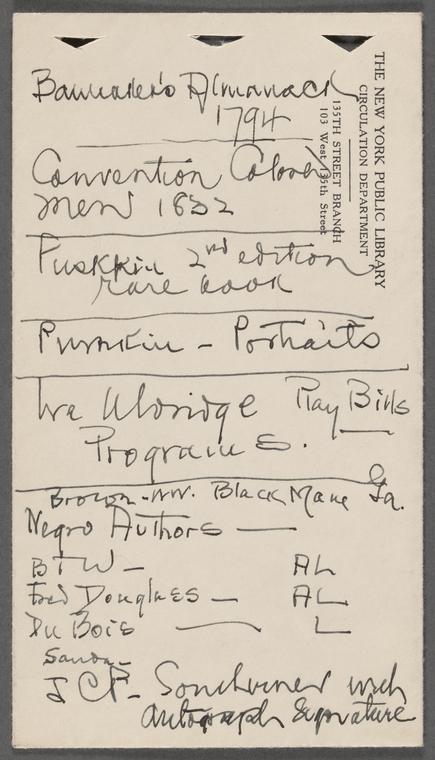 THE NEW YORK PUBLIC LIBRARY
CIRCULATION DEPARTMENT
135TH STREET BRANCH
103 West 135th Street
Banneker's Almanack
1794
Convention Colored
Men 1832
Puskkin 2nd edition
rare book
Pushkin - Portraits
Ira Aldridge Play Bills
Programs.
Brown - Wm. Black Man Ga.
Negro Authors —
BTW - AL
Fred Douglass - AL
Du Bois — L
J C P - with
Autograph Signature